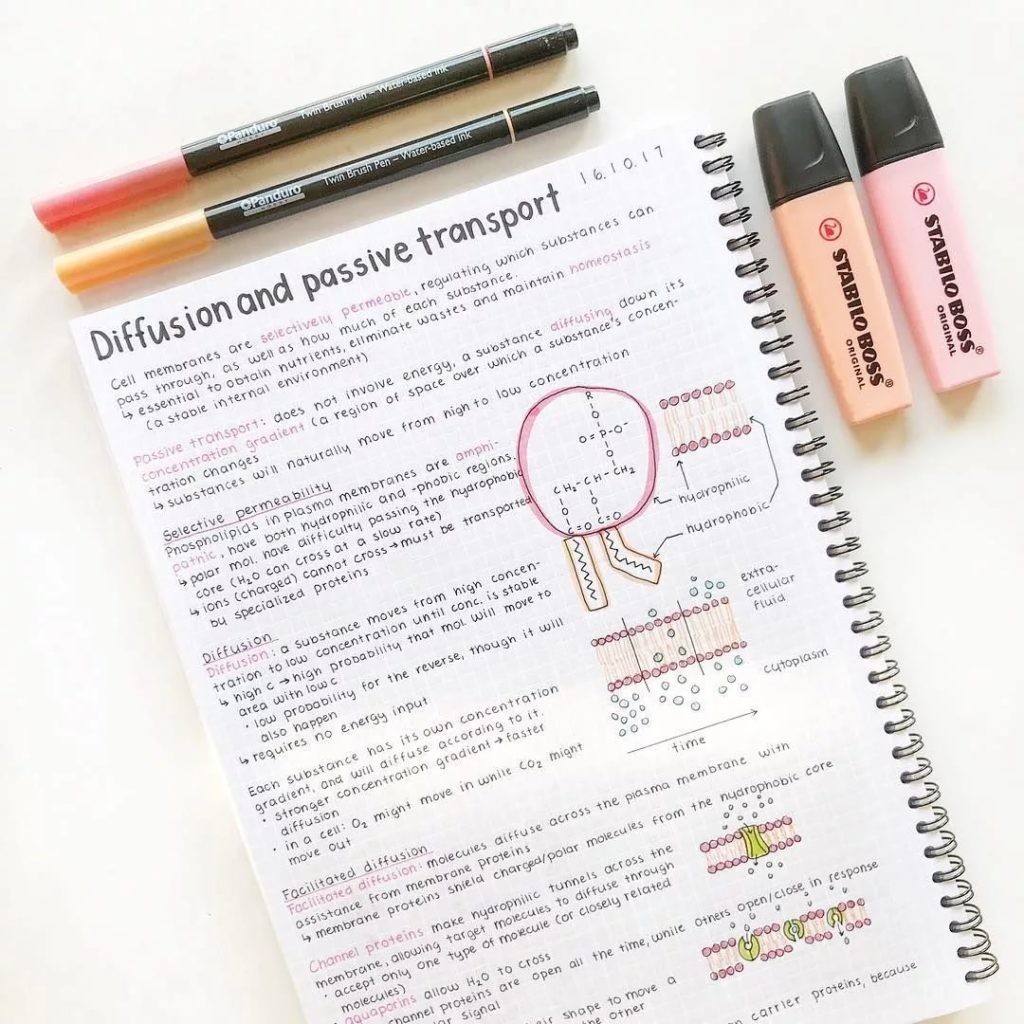 Panduro
Twin Brush Pen – Water-based Ink
Panduro
Twin Brush Pen – Water-based Ink
STABILO BOSS®
ORIGINAL
STABILO BOSS®
ORIGINAL
16.10.17
Diffusion and passive transport
Cell membranes are selectively permeable, regulating which substances can
pass through, as well as how much of each substance.
↳ essential to obtain nutrients, eliminate wastes and maintain homeostasis
(a stable internal environment)
Passive transport: does not involve energy, a substance diffusing down its
concentration gradient (a region of space over which a substance's concen-
tration changes
↳ substances will naturally move from high to low concentration
Selective permeability
Phospholipids in plasma membranes are amphi-
pathic, have both hydrophilic and -phobic regions.
↳ polar mol. have difficulty passing the hydrophobic
core (H₂O can cross at a slow rate)
↳ ions (charged) cannot cross → must be transported
by specialized proteins
R
O
O=P-O⁻
O
CH₂-CH-CH₂
O O
C=O C=O
hydrophilic
hydrophobic
Diffusion
Diffusion: a substance moves from high concen-
tration to low concentration until conc. is stable
↳ high c → high probability that mol. will move to
area with low c
• low probability for the reverse, though it will
also happen
↳ requires no energy input
extra-
cellular
fluid
cytoplasm
time
Each substance has its own concentration
gradient, and will diffuse according to it.
• stronger concentration gradient → faster
diffusion
• in a cell: O₂ might move in while CO₂ might
move out
Facilitated diffusion
Facilitated diffusion: molecules diffuse across the plasma membrane with
assistance from membrane proteins
↳ membrane proteins shield charged/polar molecules from the hydrophobic core
Channel proteins make hydrophilic tunnels across the
membrane, allowing target molecules to diffuse through
• accept only one type of molecule (or closely related
molecules)
• aquaporins allow H₂O to cross
channel proteins are open all the time, while others open/close in response
signal
their shape to move a
the other
carrier proteins, because